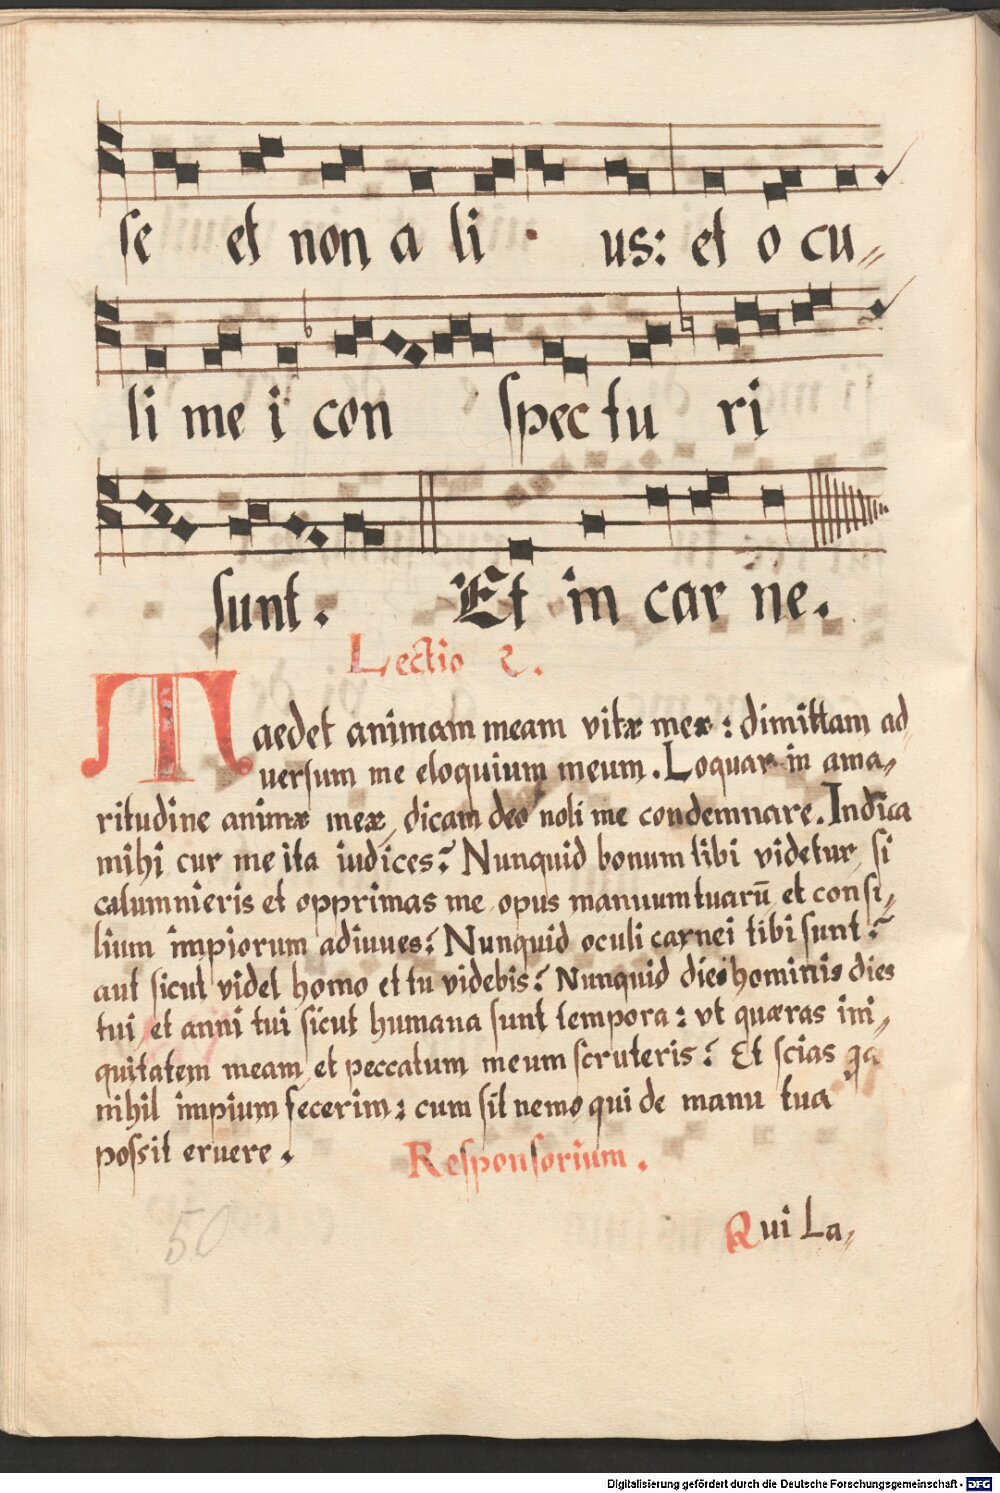 se et non a li us: et o cu„
li me i con spec tu ri
sunt. Et in car ne.
Lectio 2.
Taedet animam meam vitæ meæ: dimittam ad
versum me eloquium meum. Loquar in ama„
ritudine animæ meæ, dicam deo noli me condemnare. Indica
mihi cur me ita iudices? Nunquid bonum tibi videtur, si
calumnieris et opprimas me opus manuum tuarū, et consi„
lium impiorum adiuves? Nunquid oculi carnei tibi sunt?
aut sicut videt homo et tu videbis? Nunquid dies hominis dies
tui, et anni tui sicut humana sunt tempora: vt quæras ini„
quitatem meam, et peccatum meum scruteris? Et scias qa
nihil impium fecerim: cum sit nemo qui de manu tua
possit eruere.
Responsorium.
Qui La„
50
Digitalisierung gefördert durch die Deutsche Forschungsgemeinschaft - DFG